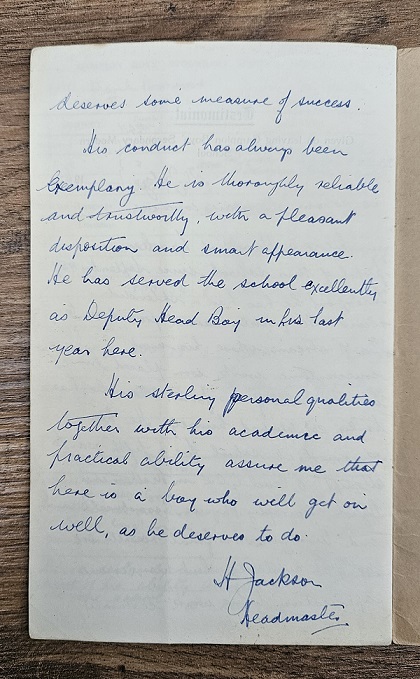 deserves some measure of success.
His conduct has always been
exemplary. He is thoroughly reliable
and trustworthy, with a pleasant
disposition and smart appearance.
He has served the school excellently
as Deputy Head Boy in his last
year here.
His sterling personal qualities
together with his academic and
practical ability assure me that
here is a boy who will get on
well, as he deserves to do.
H Jackson
Headmaster.